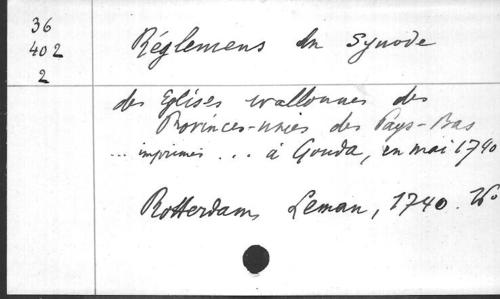 36
402
2
Réglemens du Synode
des Eglises wallonnes des
Provinces-unies des Pays-Bas
... imprimés ... à Gouda, en mai 1740
Rotterdam, Leman, 1740.